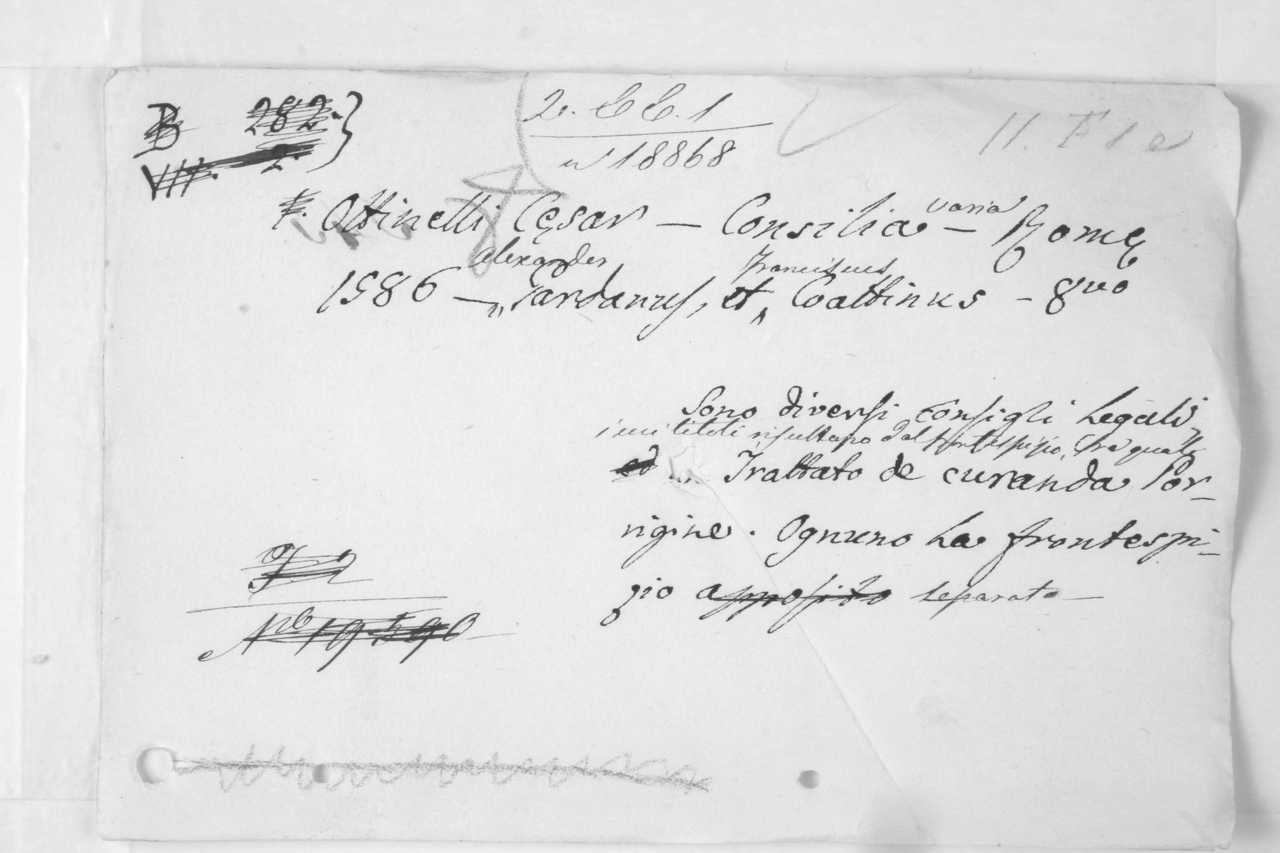 B 282. }
VIII. 2.
2. CC. 1
n 18868
11. F 1 e
Ottinelli Cęsar — Consilia varia — Romę
1586 — Alexander Gardanus, et Franciscus Coattinus — 8vo
Sono diversi Consigli Legali,
i cui titoli risultano dal frontespizio, fra quali
ed un Trattato de curanda Por-
rigine. Ognuno ha frontespi-
zio apposito separato —
No 19590